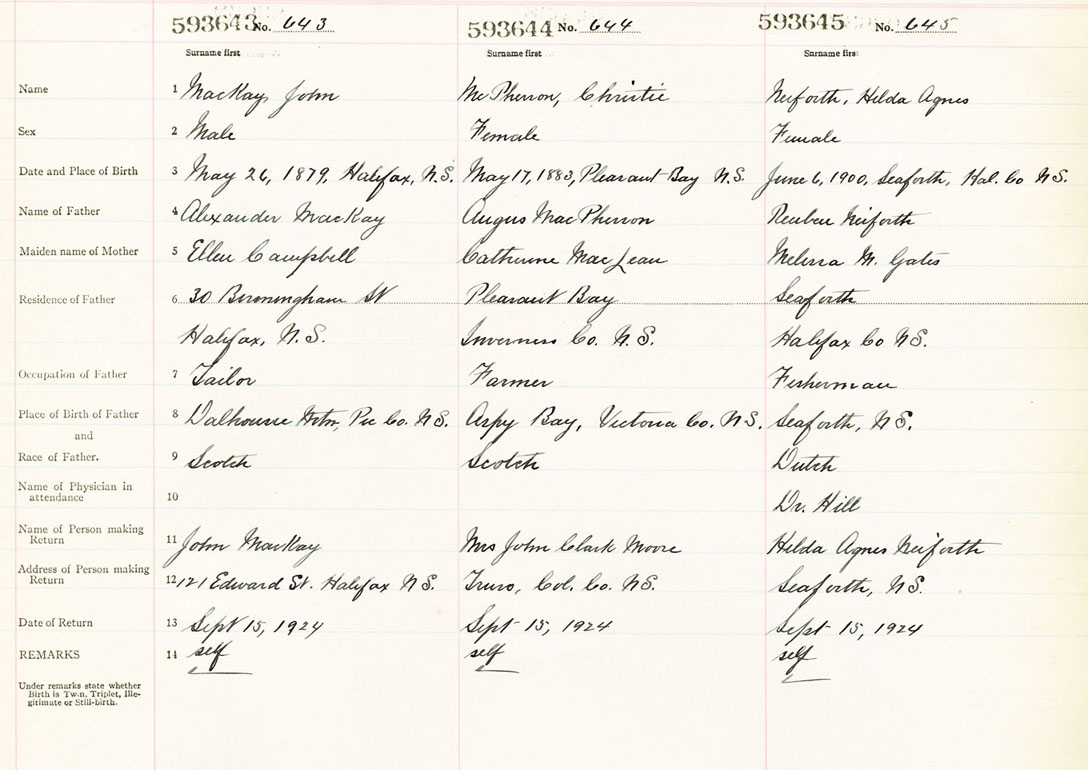 593643 No. 643 593644 No. 644 593645 No. 645
Surname first Surname first Surname first
Name 1 MacKay John McPherson, Christie Neiforth, Hilda Agnes
Sex 2 Male Female Female
Date and Place of Birth 3 May 26, 1879, Halifax, N.S. May 17, 1883, Pleasant Bay N.S. June 6, 1900, Seaforth, Hal. Co N.S.
Name of Father 4 Alexander MacKay Angus MacPherson Reuben Neiforth
Maiden name of Mother 5 Ellen Campbell Catherine MacLean Melissa M. Gates
Residence of Father 6 30 Birmingham St Pleasant Bay Seaforth
Halifax, N.S. Inverness Co. N.S. Halifax Co N.S.
Occupation of Father 7 Tailor Farmer Fisherman
Place of Birth of Father 8 Dalhousie Mtn, Pic Co. N.S. Aspy Bay, Victoria Co. N.S. Seaforth, N.S.
and
Race of Father. 9 Scotch Scotch Dutch
Name of Physician in
attendance 10 Dr. Hill
Name of Person making
Return 11 John MacKay Mrs John Clark Moore Hilda Agnes Neiforth
Address of Person making
Return 12 121 Edward St. Halifax N.S. Truro, Col. Co. N.S. Seaforth, N.S.
Date of Return 13 Sept 15, 1924 Sept 15, 1924 Sept 15, 1924
REMARKS 14 self self self
Under remarks state whether
Birth is Twin, Triplet, Ille-
gitimate or Still-birth.